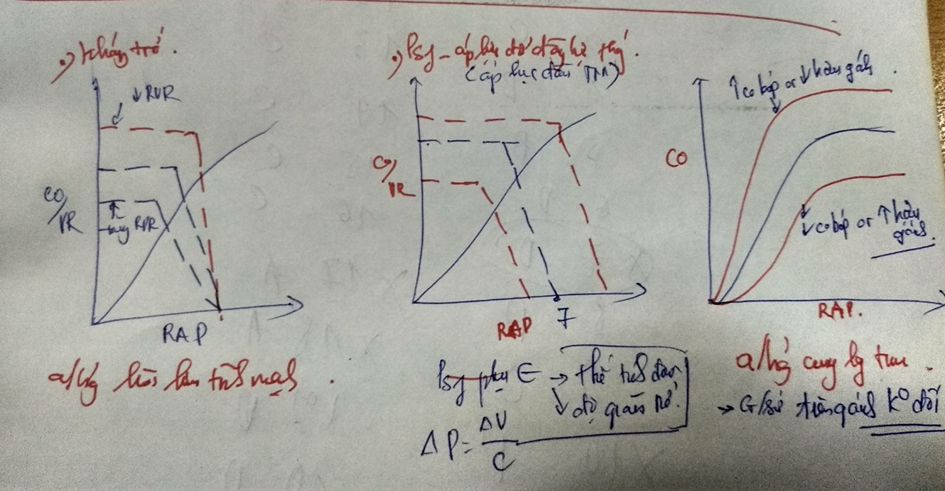 .) Kháng trở.
↓ RVR
CO/VR
↑
tăng RVR
RAP
a/hg hồi lưu tĩnh mạch.
.) Psf - áp lực đổ đầy hệ thg
(áp lực đầu TM)
CO/VR
RAP 7
Psf phụ ∈ → thể tích đầu
↓ độ giãn nở.
ΔP = ΔV/C
↑ co bóp or ↓ hậu gánh.
CO
↓ co bóp or ↑ hậu gánh.
RAP.
a/hg cung lg tim.
→ G/sử tiền gánh K° đổi